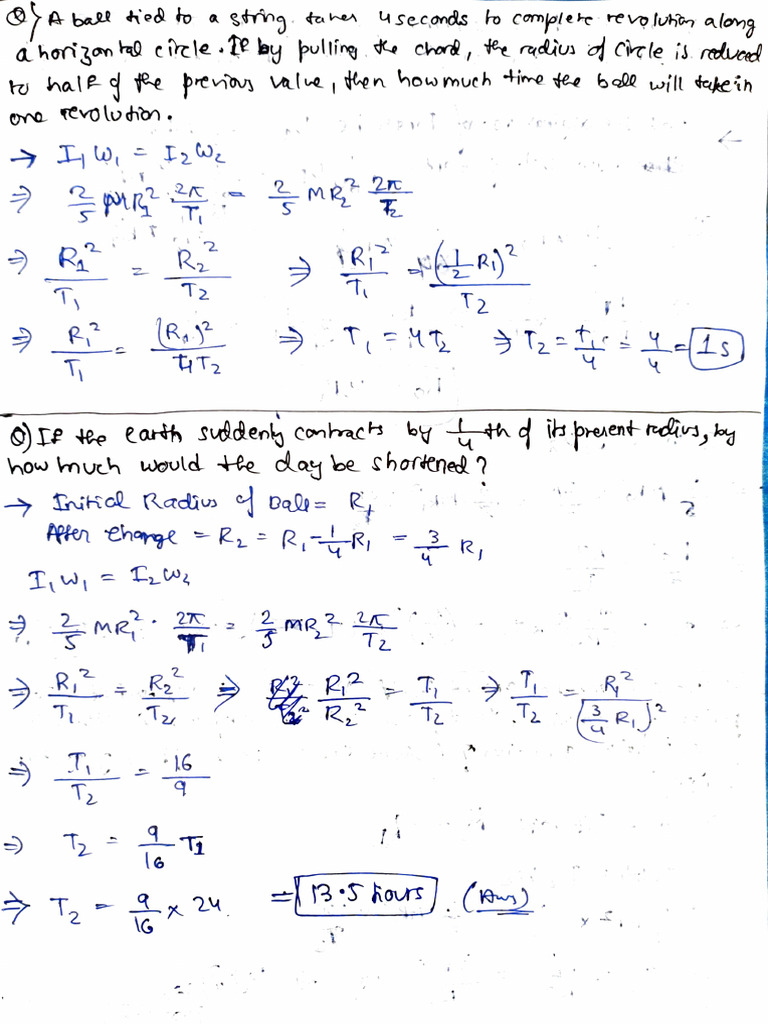 Q) A ball tied to a string takes 4 seconds to complete revolution along
a horizontal circle. If by pulling the chord, the radius of circle is reduced
to half of the previous value, then how much time the ball will take in
one revolution.
→ I₁ W₁ = I₂ W₂
⇒ 2/5 MR₁² 2π/T₁ = 2/5 MR₂² 2π/T₂
⇒ R₁²/T₁ = R₂²/T₂ ⇒ R₁²/T₁ = (1/2 R₁)²/T₂
⇒ R₁²/T₁ = (R₁)²/4T₂ ⇒ T₁ = 4T₂ ⇒ T₂ = T₁/4 = 4/4 = 1s
Q) If the earth suddenly contracts by 1/4 th of its present radius, by
how much would the day be shortened?
→ Initial Radius of Ball = R₁
After change = R₂ = R₁ - 1/4 R₁ = 3/4 R₁
I₁ W₁ = I₂ W₂
⇒ 2/5 MR₁² · 2π/T₁ = 2/5 MR₂² 2π/T₂
⇒ R₁²/T₁ = R₂²/T₂ ⇒ R₁²/R₂² = T₁/T₂ ⇒ T₁/T₂ = R₁²/(3/4 R₁)²
⇒ T₁/T₂ = 16/9
⇒ T₂ = 9/16 T₁
⇒ T₂ = 9/16 × 24 = 13.5 hours. (Ans)